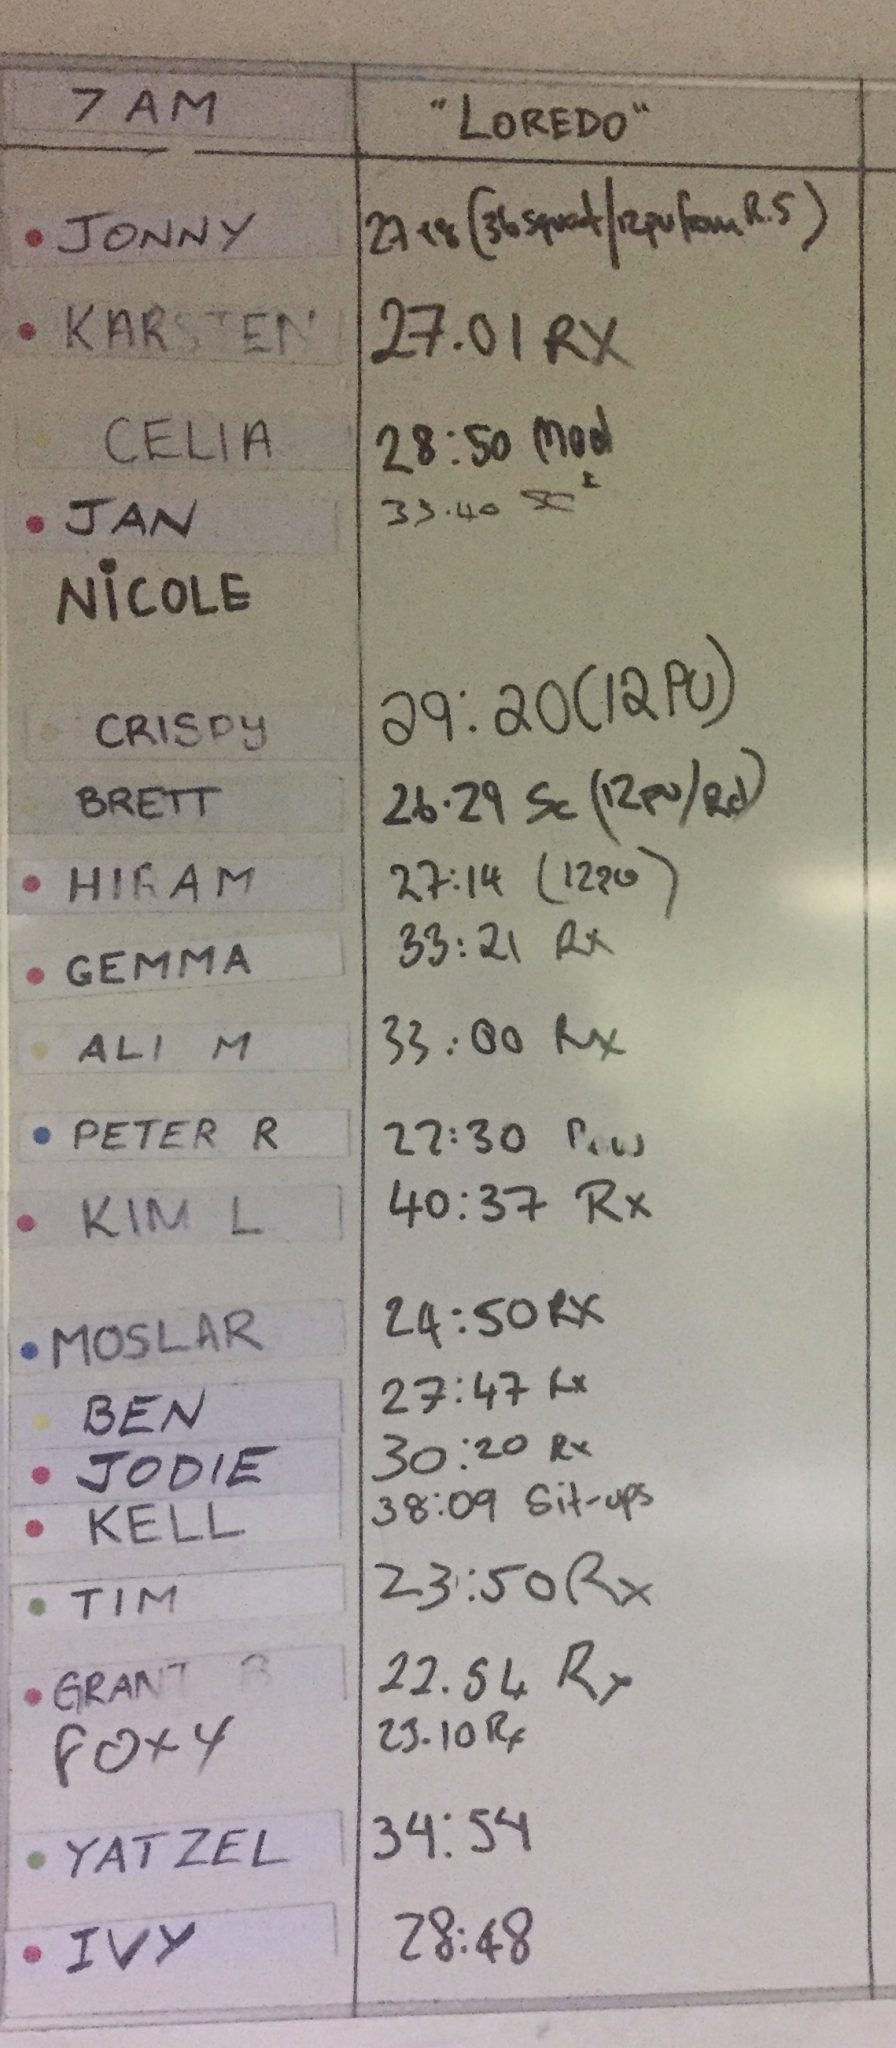 7 AM "LOREDO"
JONNY 27.18 (36 squat/12pu from R.5)
KARSTEN 27.01 RX
CELIA 28:50 Mod
JAN 33.40 SC²
NICOLE
CRISPY 29:20 (12PU)
BRETT 26.29 Sc (12pu/Rd)
HIRAM 27:14 (12PU)
GEMMA 33:21 Rx
ALI M 33:00 Rx
PETER R 22:30
KIM L 40:37 Rx
MOSLAR 24:50 RX
BEN 27:47 Rx
JODIE 30:20 Rx
KELL 38:09 Sit-ups
TIM 23:50 Rx
GRANT B 22.54 Rx
FOXY 23.10 Rx
YATZEL 34:54
IVY 28:48